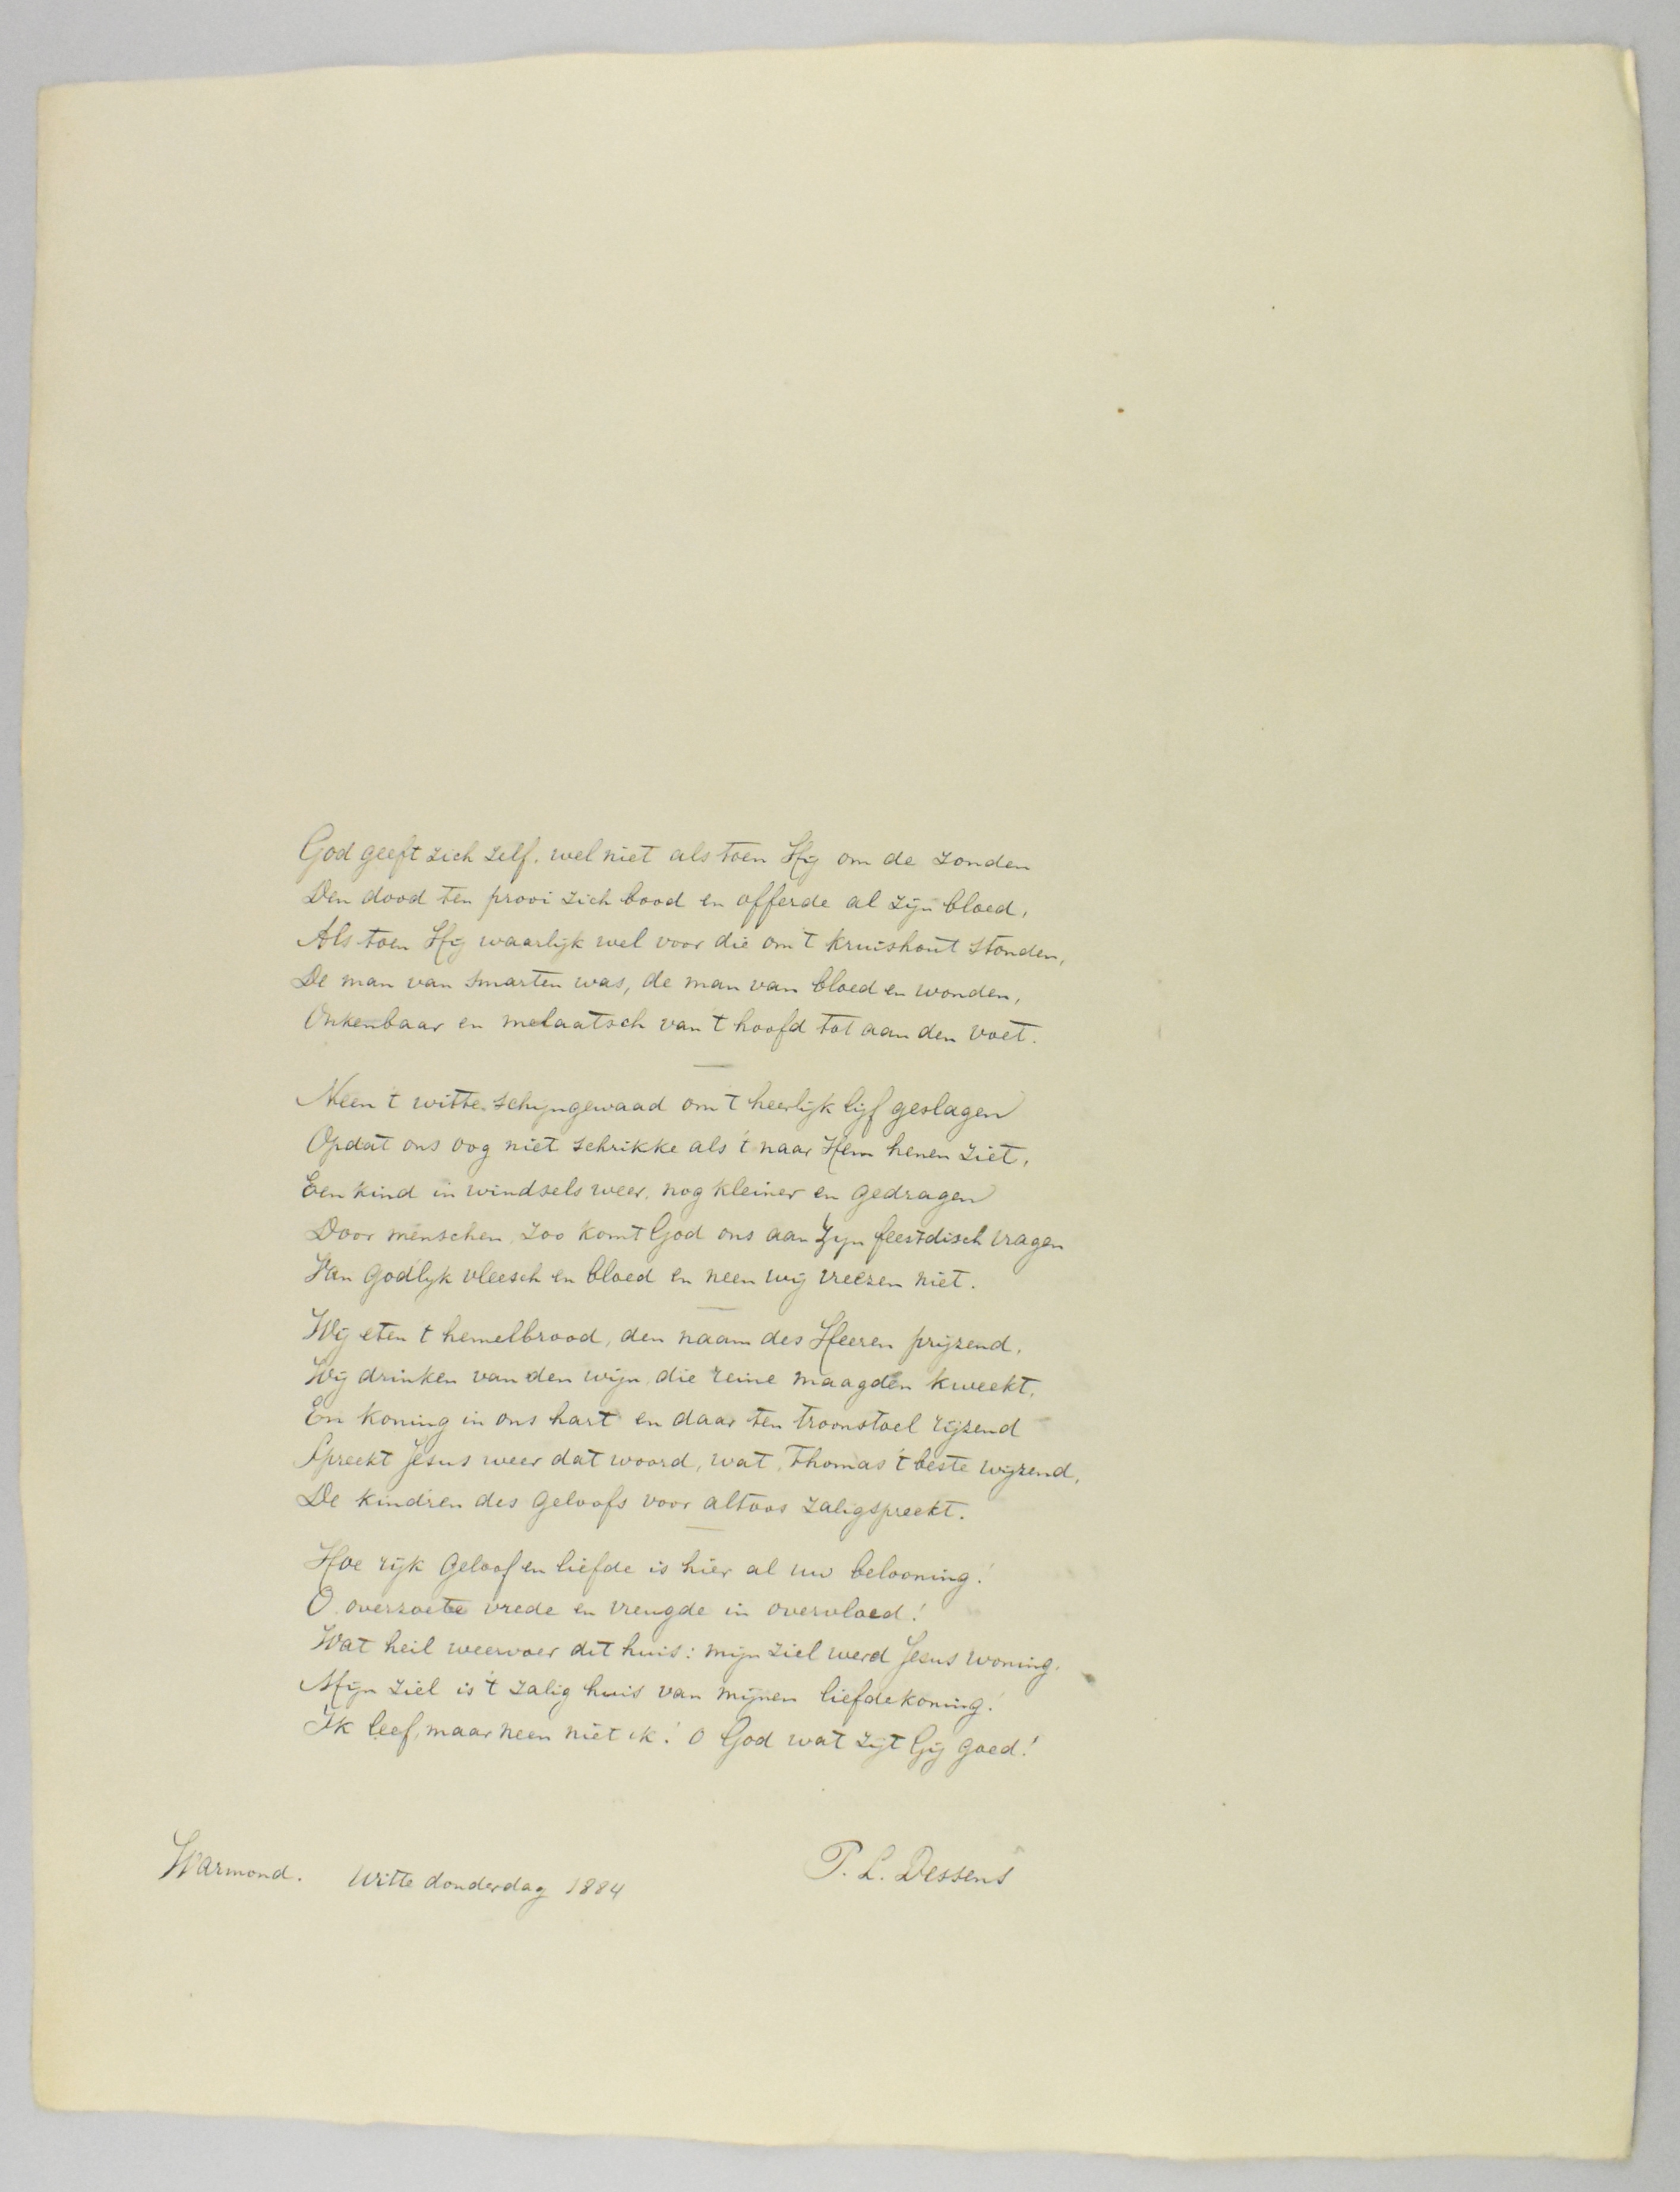 God geeft zich zelf, wel niet als toen Hij om de zonden
Den dood ten prooi zich bood en offerde al zijn bloed,
Als toen Hij waarlijk wel voor die om 't kruishout stonden,
De man van smarten was, de man van bloed en wonden,
Onkenbaar en melaatsch van 't hoofd tot aan den voet.
Neen 't witte schijngewaad om 't heerlijk lijf geslagen
Opdat ons oog niet schrikke als 't naar Hem henen ziet,
Een kind in windsels weer, nog kleiner en gedragen
Door menschen, zoo komt God ons aan zijn feestdisch vragen
Van godlijk vleesch en bloed en neen wij vreezen niet.
Wij eten 't hemelbrood, den naam des Heeren prijzend,
Wij drinken van den wijn, die reine maagden kweekt,
En koning in ons hart en daar ten troonstoel rijzend
Spreekt Jesus weer dat woord, wat, Thomas 't beste wijzend,
De kindren des geloofs voor altoos zaligspreekt.
Hoe rijk geloof en liefde is hier al uw belooning!
O overzoete vrede en vreugde in overvloed!
Wat heil weervoer dit huis: mijn ziel werd Jesus woning.
Mijn ziel is 't zalig huis van mijnen liefdekoning!
Ik leef, maar neen niet ik! O God wat zijt Gij goed!
Warmond. Witte donderdag 1884
P. L. Dessens